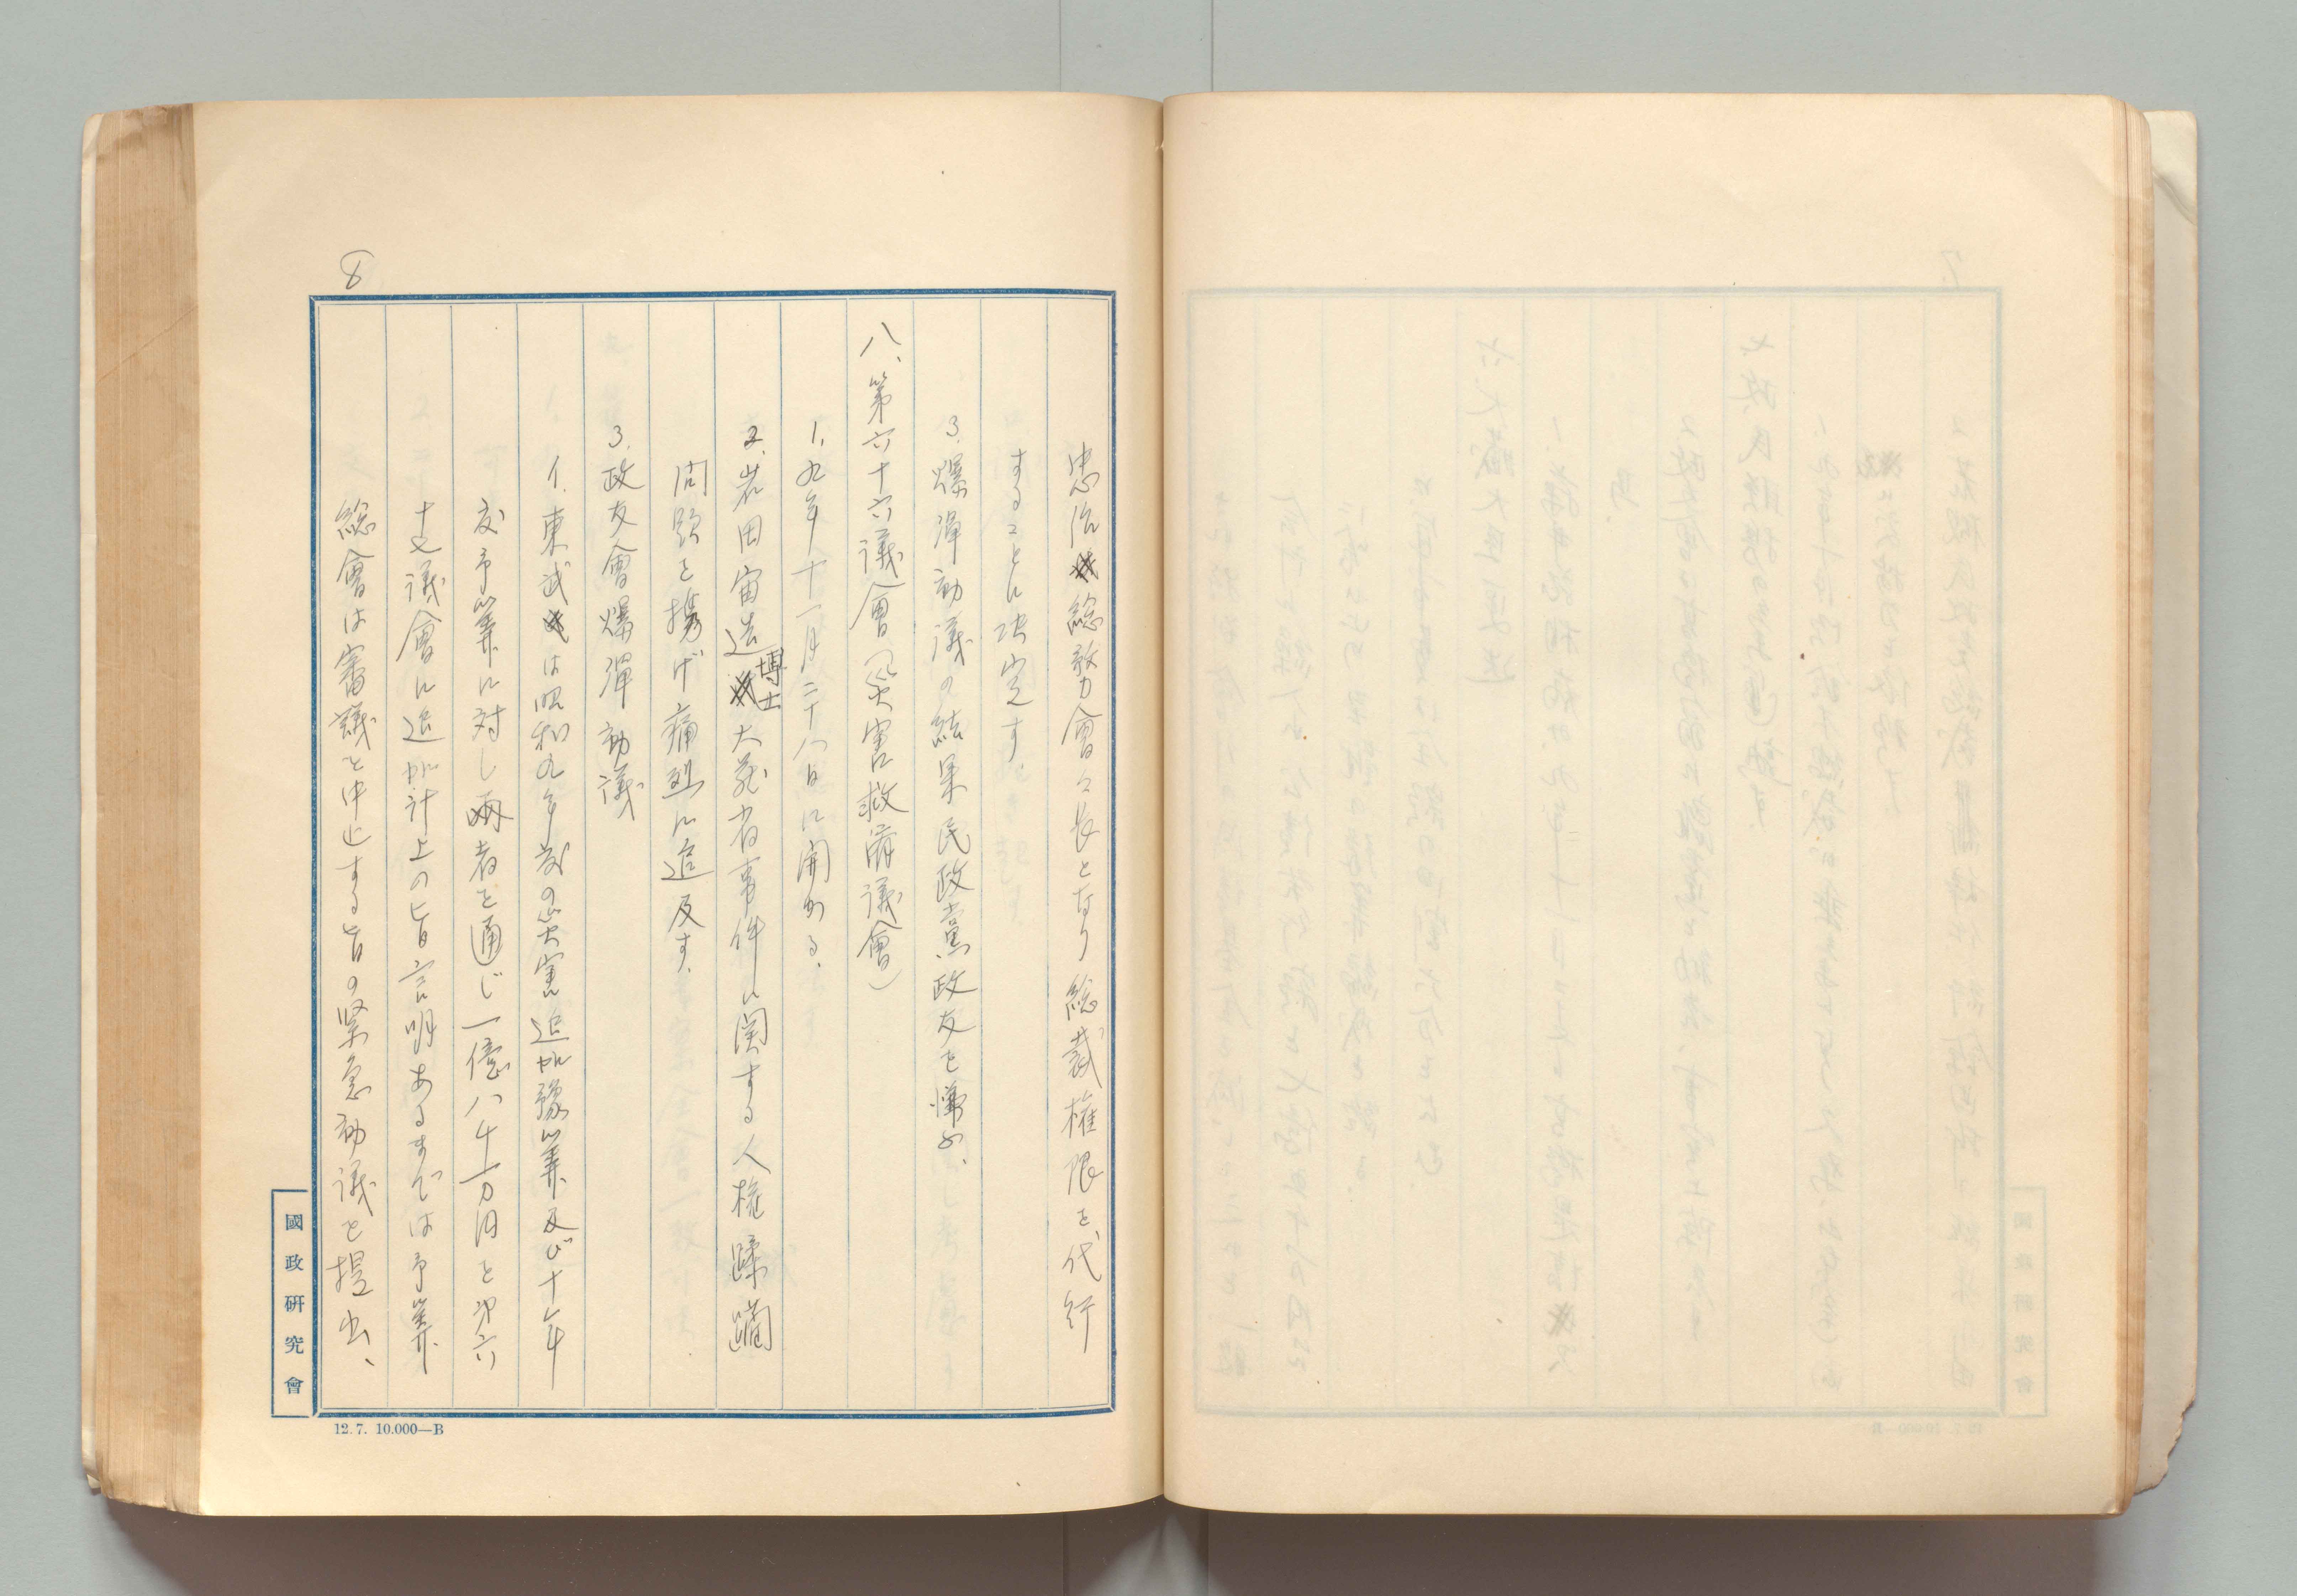 8
忠治総務會々長となり総裁権限を代行
することに決定す.
3.爆弾動議の結果民政党政友を
八、第六十六議會(災害救済議會)
1.九年十一月二十八日に開かる.
2.岩田宙造博士大蔵省事件に関する人権蹂躙
問題を携げ痛烈に追及す.
3.政友會爆彈動議
イ.東武は昭和九年度の災害追加豫算及び十年
度予算に対し両者を通じ一億八千万円を第六
十七議會に追加計上の旨言明あるまでは予算
総會は審議を中止する旨の緊急動議を提出、
國政研究會
12.7. 10.000—B